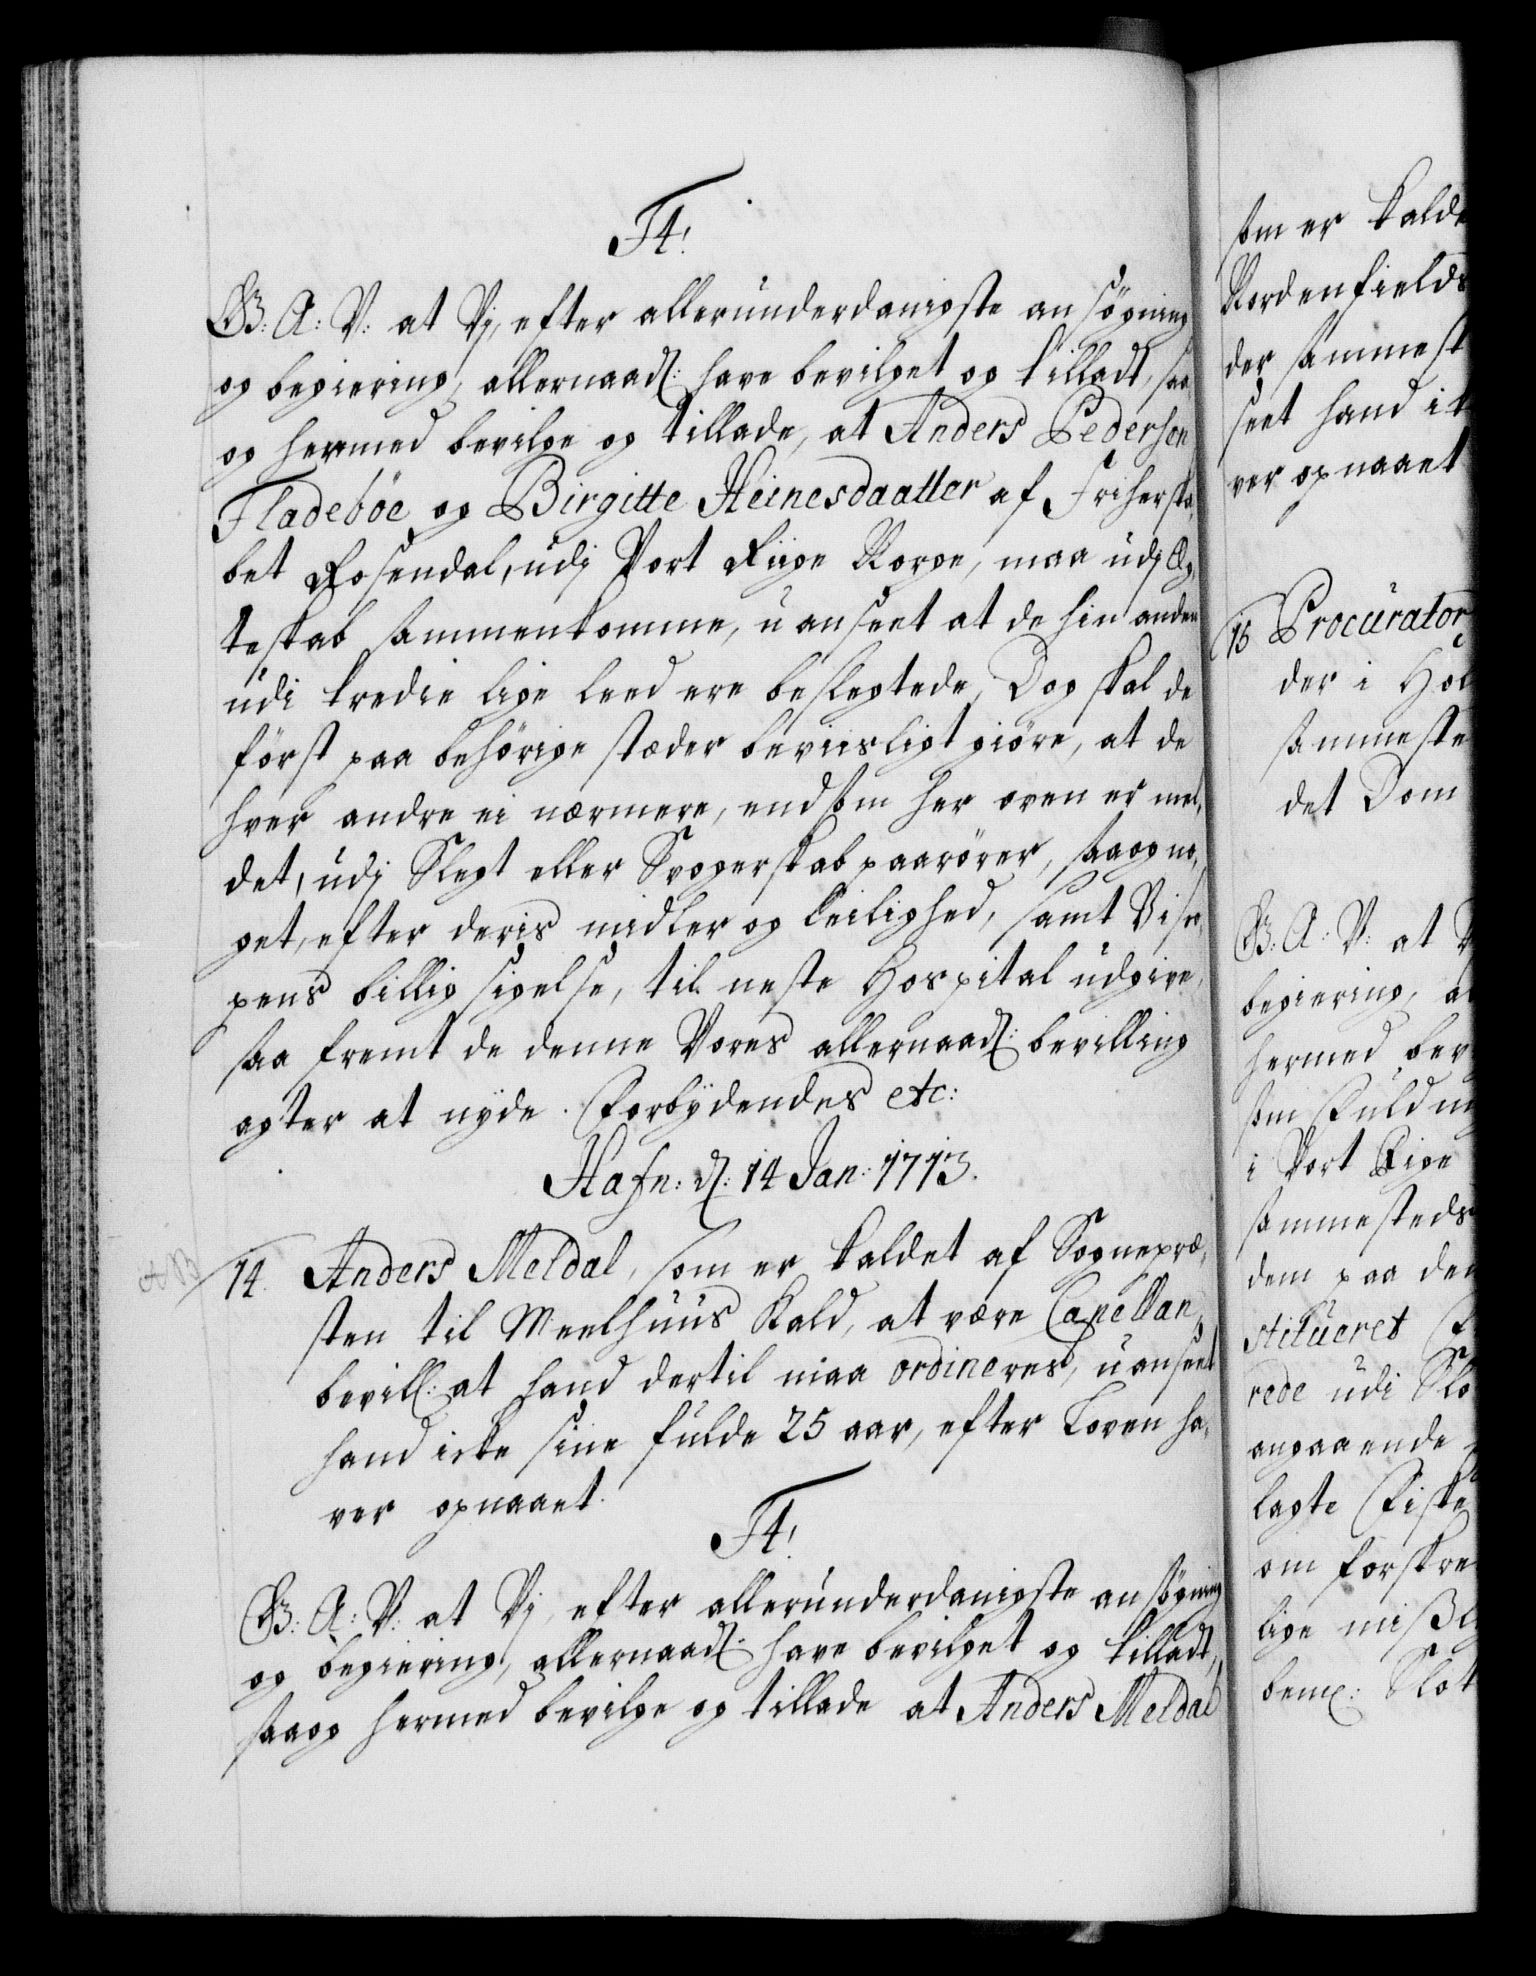 F4!
G: A: V: at Vj, efter allerunderdanigste ansögning
og begiering, allernaad: have bevilget og tilladt, saa
og hermed bevilge og tillade, at Anders Pedersen
Fladebøe og Birgitte Heinesdaatter af Friherska,
bet Rosendal, udj Vort Riige Norge, maa udj Eg,
teskab sammenkomme, uanseet at de hin anden
udi tredie lige leed ere beslegtede, Dog skal de
först paa behörige stæder beviisligt giöre, at de
hver andre ei nærmere, end som her oven er mel,
det, udj Slegt eller Svogerskab paarörer, saa og no,
get, efter deris midler og leilighed, samt Bisco,
pens billig sigelse, til neste Hospital udgive,
saa fremt de denne Vores allernaad: bevilling
agter at nyde. Forbydendes etc:
Hafn: d: 14 Jan: 1713.
14. Anders Meldal, som er kaldet af Sognepræ,
sten til Meelhuus Kald, at være Capellan,
bevill: at hand dertil maa ordineres, uanseet
hand icke sine fulde 25 aar, efter Loven ha,
ver opnaaet.
F4!
G: A: V: at Vj, efter allerunderdanigste ansögning
og begiering, allernaad: have bevilget og tilladt,
saa og hermed bevilge og tillade at Anders Meldal
som er kalde
Nordenfields
der sammest
seet hand ik
ver opnaaet
15 Procurator
der i Hol
sammeste
det Dom
G: A: V: at V
begiering, a
hermed bev
som Fuldm
i Vort Rige
sammesteds
dem paa den
stitueret
rede udi Slo
angaaende
lagte Fiske
om forskre
lige miszl
bem: Slot